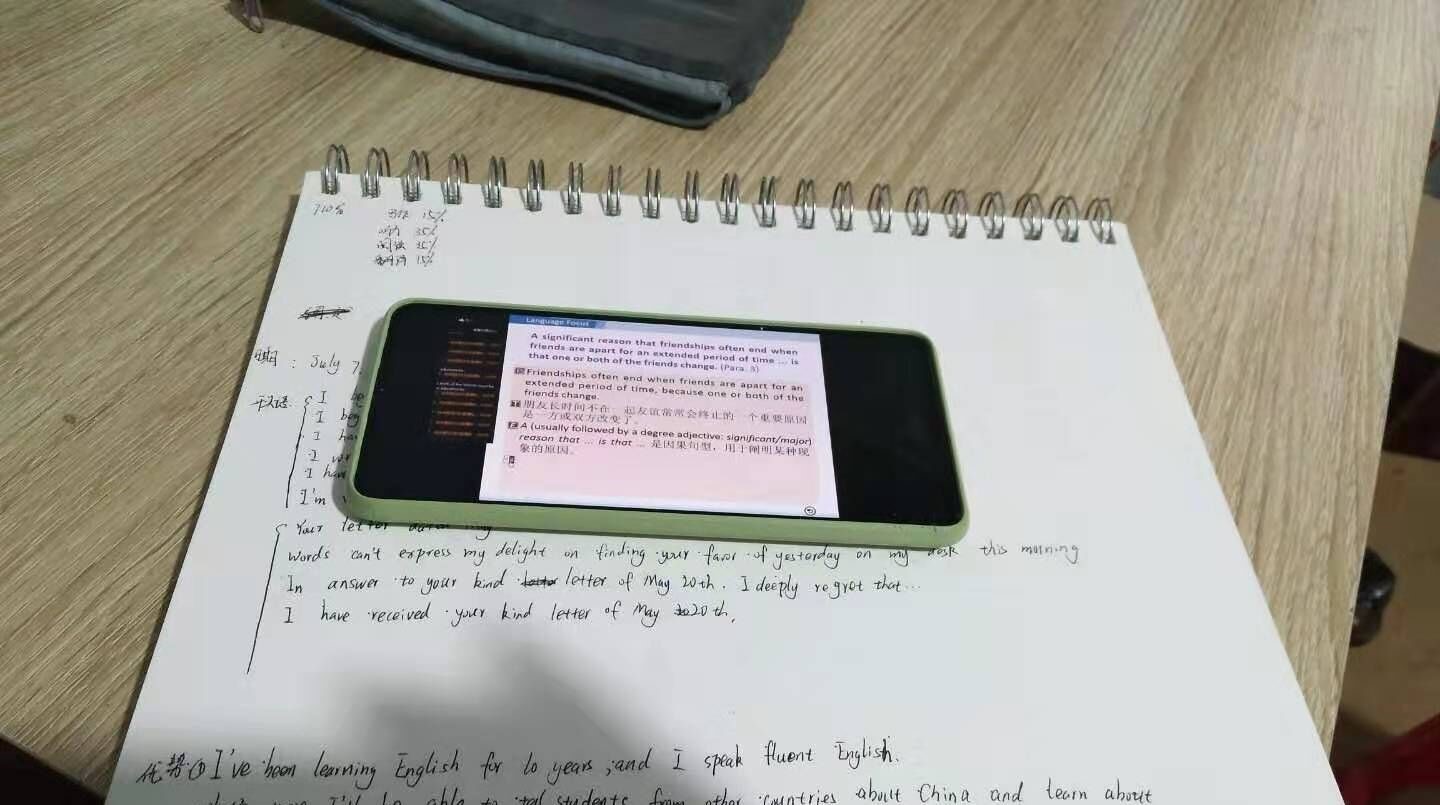 710分 写作 15%
听力 35%
阅读 35%
翻译 15%
日期: July 7,
Language Focus
A significant reason that friendships often end when
friends are apart for an extended period of time ... is
that one or both of the friends change. (Para. 3)
P Friendships often end when friends are apart for an
extended period of time, because one or both of the
friends change.
T 朋友长时间不在一起友谊常常会终止的一个重要原因
是一方或双方改变了。
E A (usually followed by a degree adjective: significant/major)
reason that ... is that ... 是因果句型，用于阐明某种现
象的原因。
I
I beg
I ha
I
I have
I'm
Your letter
words can't express my delight on finding your favor of yesterday on my desk this morning
In answer to your kind letter of May 20th. I deeply regret that...
I have received your kind letter of May 20th,
优势① I've been learning English for 10 years, and I speak fluent English.
I'll be able to tell students from other countries about China and learn about